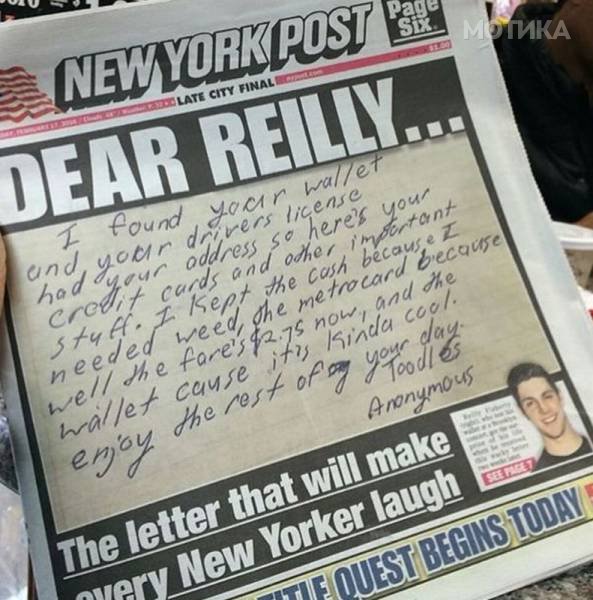 Page
Six.
МОТИКА
NEW YORK POST
$1.00
LATE CITY FINAL
nypost.com
DEAR REILLY...
I found your wallet
and your drivers license
had your address so here's your
credit cards and other important
stuff. I kept the cash because I
needed weed, the metrocard because
well the fare's $2.75 now, and the
wallet cause it's kinda cool.
enjoy the rest of your day.
Toodles
Anonymous
SEE PAGE 7
The letter that will make
every New Yorker laugh
TITLE QUEST BEGINS TODAY